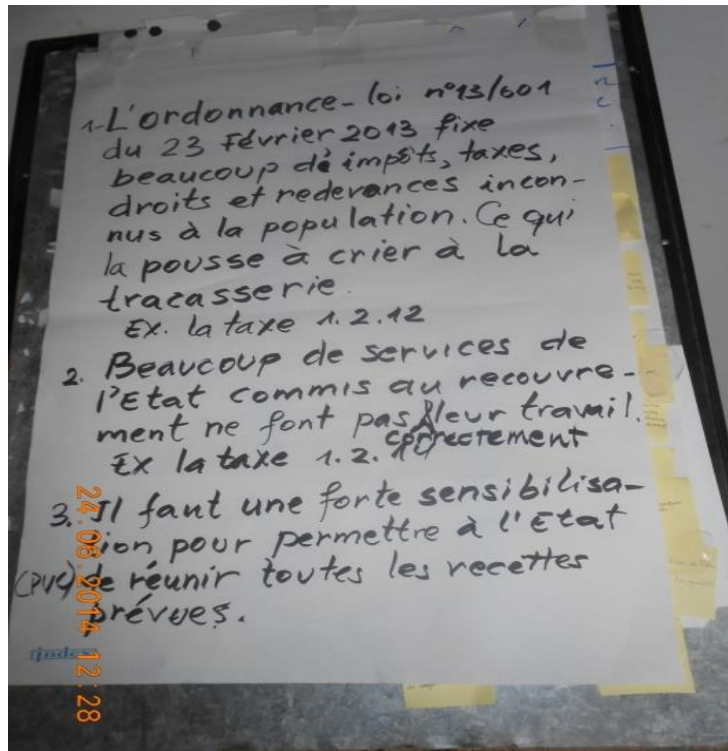 1-L'ordonnance-loi n°13/001
du 23 Février 2013 fixe
beaucoup de impôts, taxes,
droits et redevances incon-
nus à la population. Ce qui
la pousse à crier à la
tracasserie.
Ex. la taxe 1.2.12
2. Beaucoup de services de
l'Etat commis au recouvre-
ment ne font pas leur travail.
correctement
Ex la taxe 1.2.10
3. Il faut une forte sensibilisa-
ion pour permettre à l'Etat
(CPVC) de réunir toutes les recettes
prévues.
24.06.2014 12:28